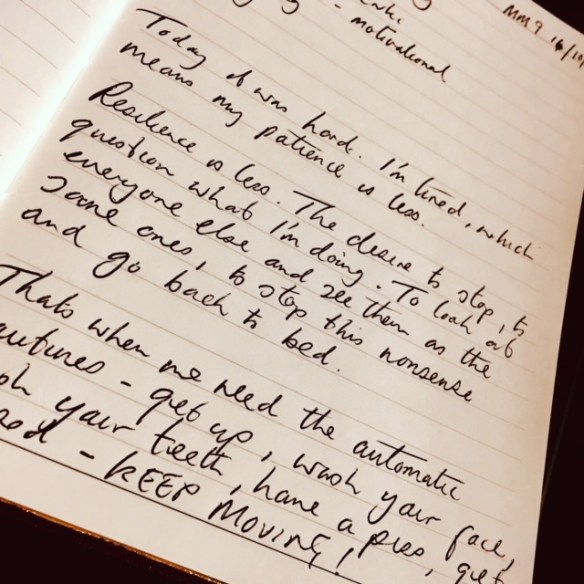 MM9 16/10/
- motivational
Today it was hard. I'm tired, which
means my patience is less.
Resilience is less. The desire to stop, to
question what I'm doing. To look at
everyone else and see them as the
sane ones, to stop this nonsense
and go back to bed.
Thats when we need the automatic
outines - get up, wash your face,
sh your teeth, have a piss, get
- KEEP MOVING!